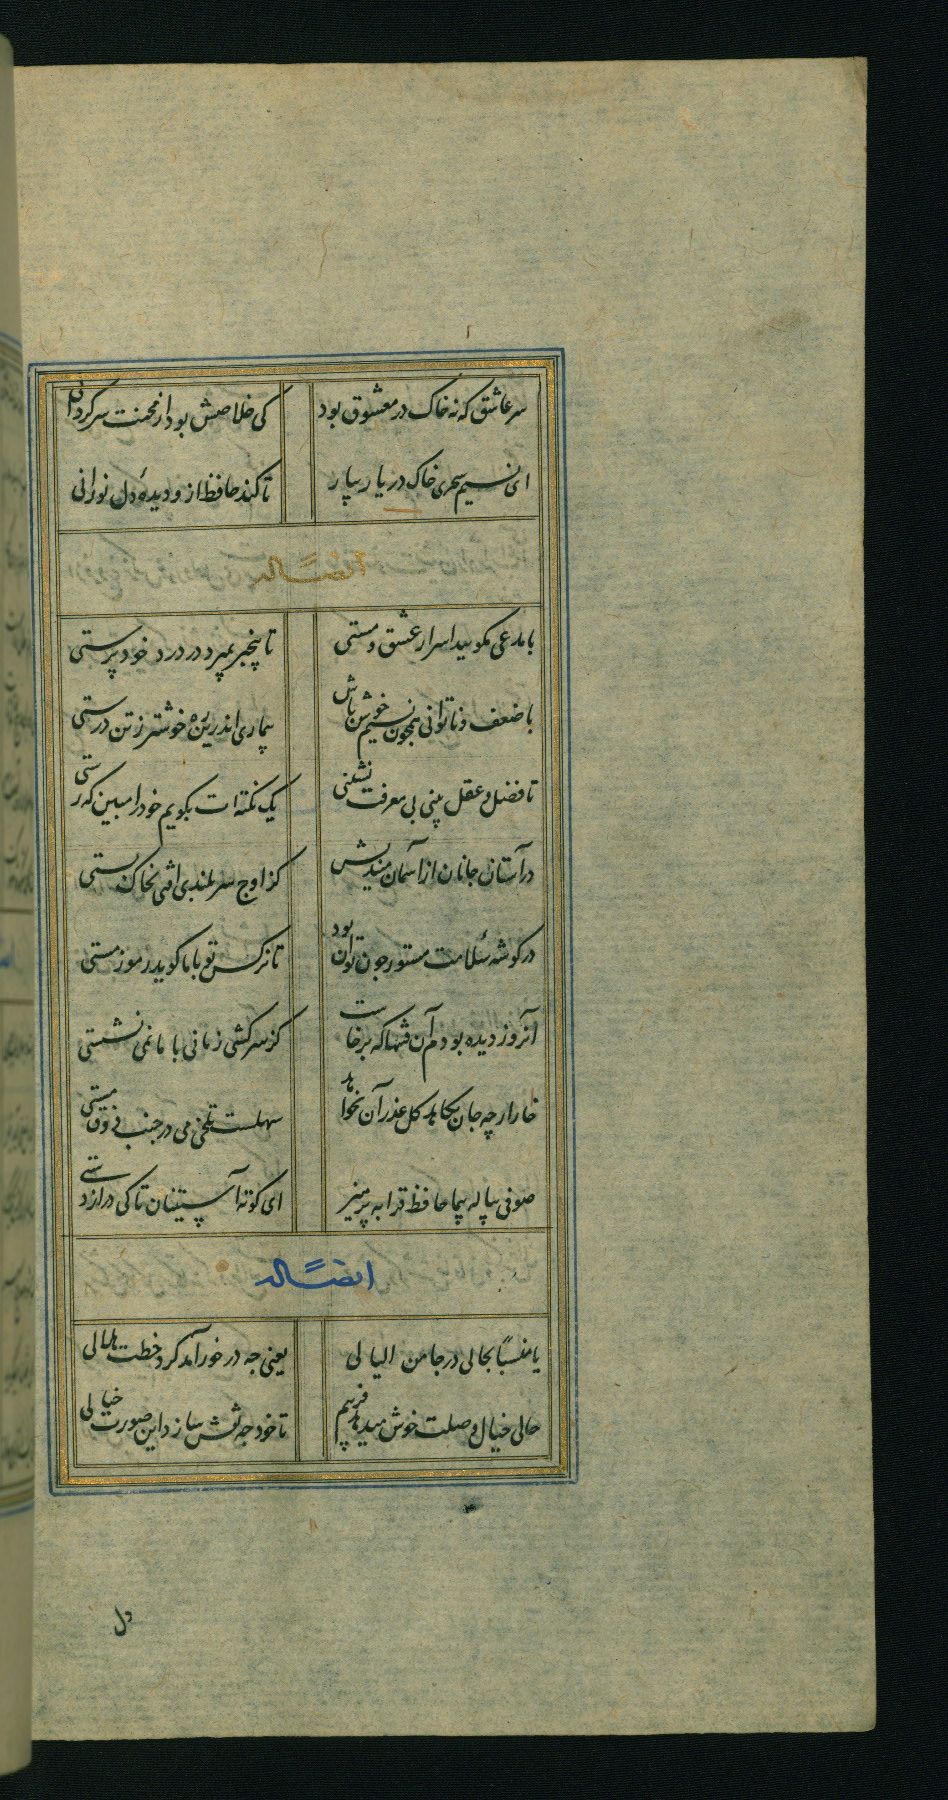 سر عاشق که نه خاک در معشوق بود کی خلاصش بود از محنت سرگردانی
ای نسیم سحری خاک در یار بیار تا کند حافظ ازو دیدهٔ دل نورانی
ایضاً له
با مدعی مگویید اسرار عشق و مستی تا بیخبر بمیرد در درد خود پرستی
با ضعف و ناتوانی همچون نسیم خوش باش بیماری اندرین ره خوشتر ز تن درستی
تا فضل و عقل بینی بی معرفت نشینی یک نکته ات بگویم خود را مبین که رستی
در آستان جانان از آسمان میندیش کز اوج سر بلندی افتی بخاک پستی
در گوشه سلامت مستور چون توان بود تا نرگس تو با ما گوید رموز مستی
آنروز دیده بودم آن فتنها که برخاست کز سرکشی زمانی با ما نمی نشستی
خار ارچه جان بکاهد گل عذر آن بخواهد سهلست تلخی می در جنب ذوق مستی
صوفی پیاله پیما حافظ قرابه پرهیز ای کوته آستینان تا کی دراز دستی
ایضاً له
یا مبسماً یحاکی درجا من اللیالی یعنی چه در خور آمد گرد خطت هلالی
حالی خیال وصلت خوش میدهد فریبم تا خود چه نقش بازد این صورت خیالی
دل